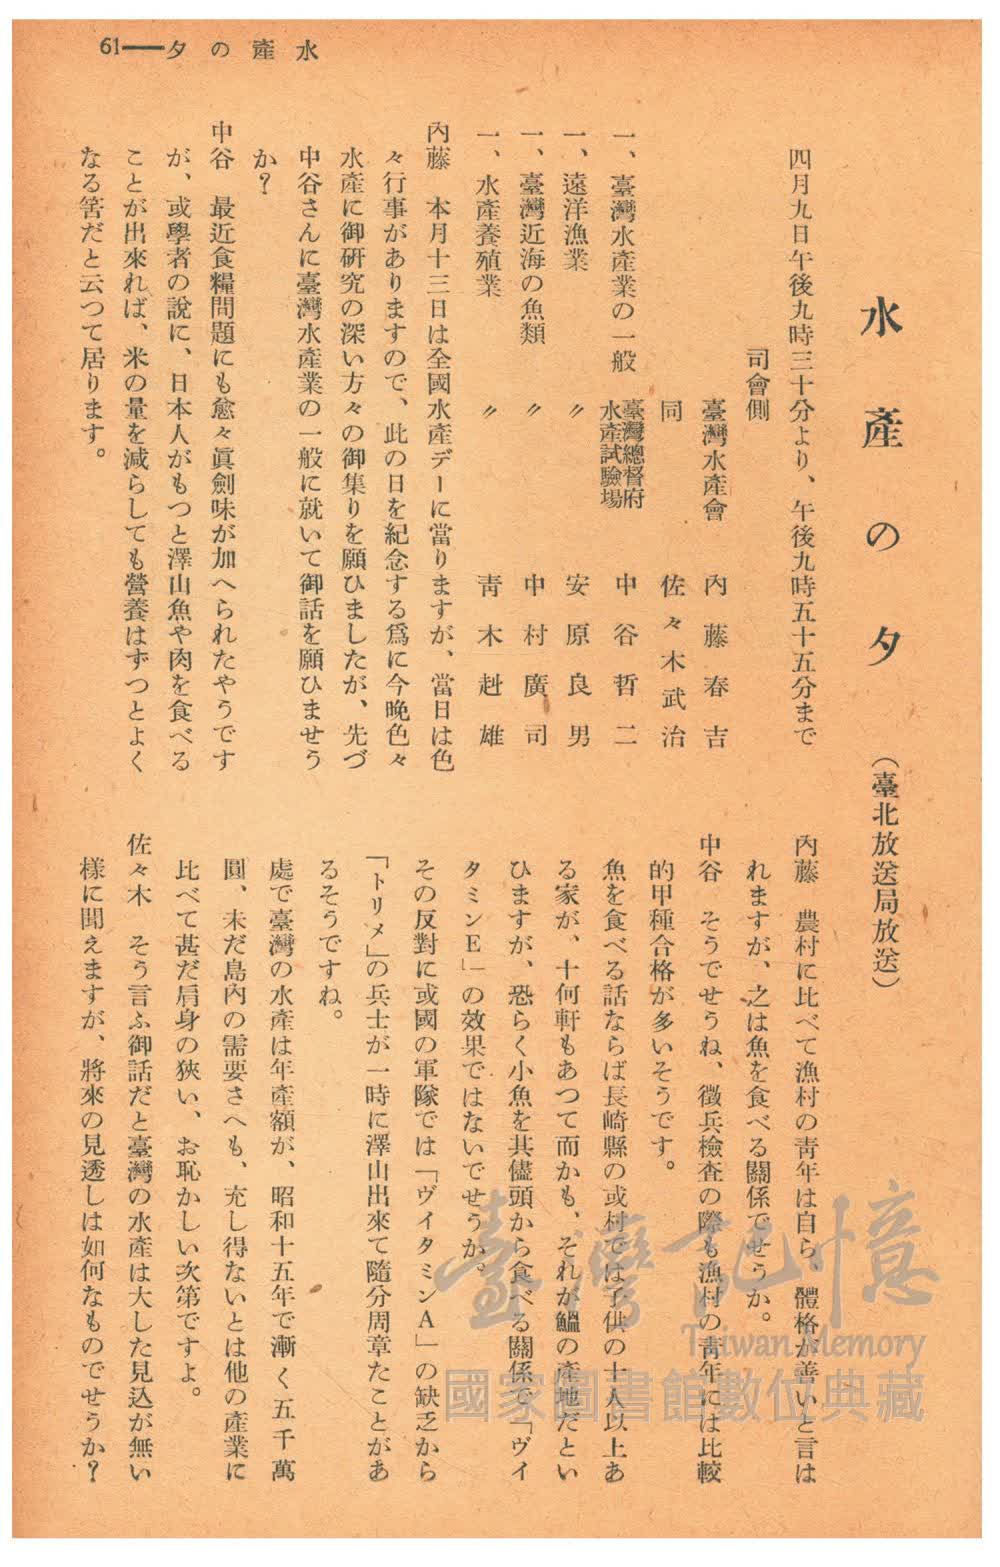 61 水産の夕
水產の夕 (臺北放送局放送)
四月九日午後九時三十分より、午後九時五十五分まで
司會側
臺灣水產會 內藤春吉
同 佐々木武治
一、臺灣水產業の一般 臺灣總督府水產試驗場 中谷哲二
一、遠洋漁業 〃 安原良男
一、臺灣近海の魚類 〃 中村廣司
一、水產養殖業 〃 靑木赳雄
內藤 本月十三日は全國水產デーに當りますが、當日は色
々行事がありますので、此の日を紀念する爲に今晩色々
水產に御硏究の深い方々の御集りを願ひましたが、先づ
中谷さんに臺灣水產業の一般に就いて御話を願ひませう
か?
中谷 最近食糧問題にも愈々眞劍味が加へられたやうです
が、或學者の說に、日本人がもつと澤山魚や肉を食べる
ことが出來れば、米の量を減らしても營養はずつとよく
なる筈だと云つて居ります。
內藤 農村に比べて漁村の靑年は自ら 體格が善いと言は
れますが、之は魚を食べる關係でせうか。
中谷 そうでせうね、徵兵檢査の際も漁村の靑年には比較
的甲種合格が多いそうです。
魚を食べる話ならば長崎縣の或村では子供の十人以上あ
る家が、十何軒もあつて而かも、それが鰮の產地だとい
ひますが、恐らく小魚を其儘頭から食べる關係で「ヴイ
タミンE」の效果ではないでせうか。
その反對に或國の軍隊では「ヴイタミンA」の缺乏から
「トリメ」の兵士が一時に澤山出來て隨分周章たことがあ
るそうですね。
處で臺灣の水產は年產額が、昭和十五年で漸く五千萬
圓、未だ島內の需要さへも、充し得ないとは他の產業に
比べて甚だ肩身の狹い、お恥かしい次第ですよ。
佐々木 そう言ふ御話だと臺灣の水產は大した見込が無い
樣に聞えますが、將來の見透しは如何なものでせうか?
臺灣記憶
Taiwan Memory
國家圖書館數位典藏